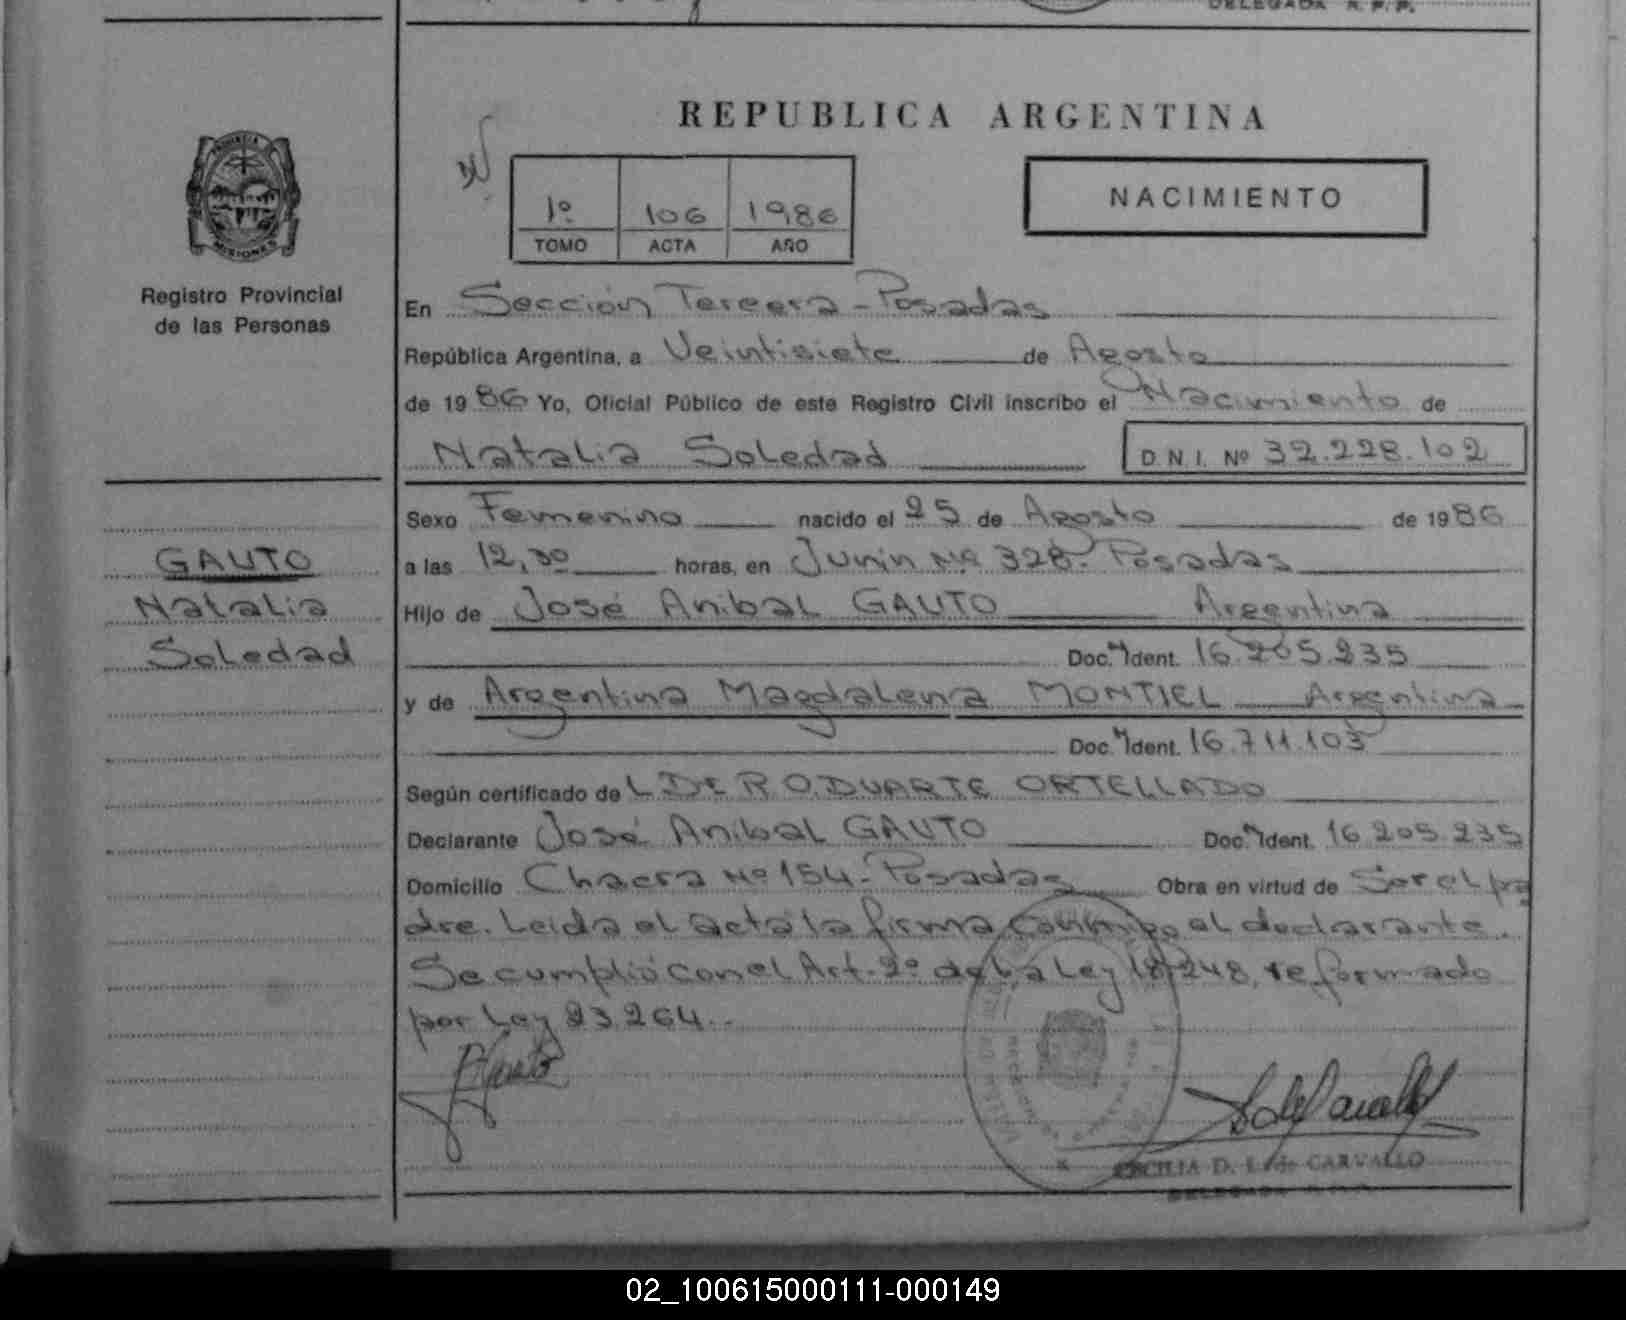 DELEGADA R. P. P.
REPUBLICA ARGENTINA
PROVINCIA
MISIONES
1º 106 1986
TOMO ACTA AÑO
NACIMIENTO
Registro Provincial
de las Personas
En Sección Tercera - Posadas
República Argentina, a Veintisiete de Agosto
de 1986 Yo, Oficial Público de este Registro Civil inscribo el Nacimiento de
Natalia Soledad D.N.I. Nº 32.228.102
Sexo Femenino nacido el 25 de Agosto de 1986
GAUTO
Natalia
Soledad
a las 12,30 horas, en Junin Nº 328. Posadas
Hijo de José Anibal GAUTO Argentina
Doc. Ident. 16.205.235
y de Argentina Magdalena MONTIEL Argentina
Doc. Ident. 16.711.103
Según certificado de L Dr R O. DUARTE ORTELLADO
Declarante José Anibal GAUTO Doc. Ident. 16 205.235
Domicilio Chacra Nº 154 - Posadas Obra en virtud de Ser el pa
dre. Leida el acta la firma conmigo el declarante.
Se cumplió con el Art. 2º de la Ley 18.248, reformado
por Ley 23.264.-
CECILIA D. L. de CARVALLO
DELEGADA
02_100615000111-000149